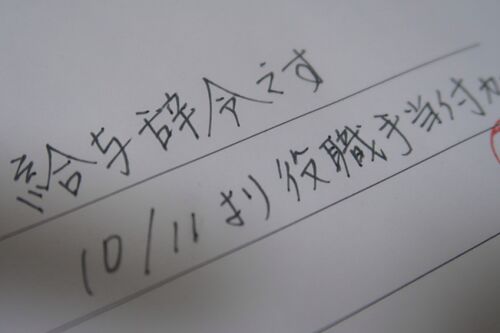 給与辞令こす
10/11より役職手当付カ